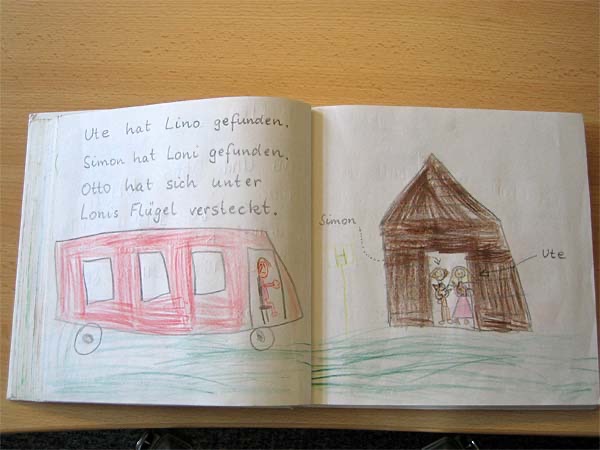 Ute hat Lino gefunden.
Simon hat Loni gefunden.
Otto hat sich unter
Lonis Flügel versteckt.
Simon
Ute
H